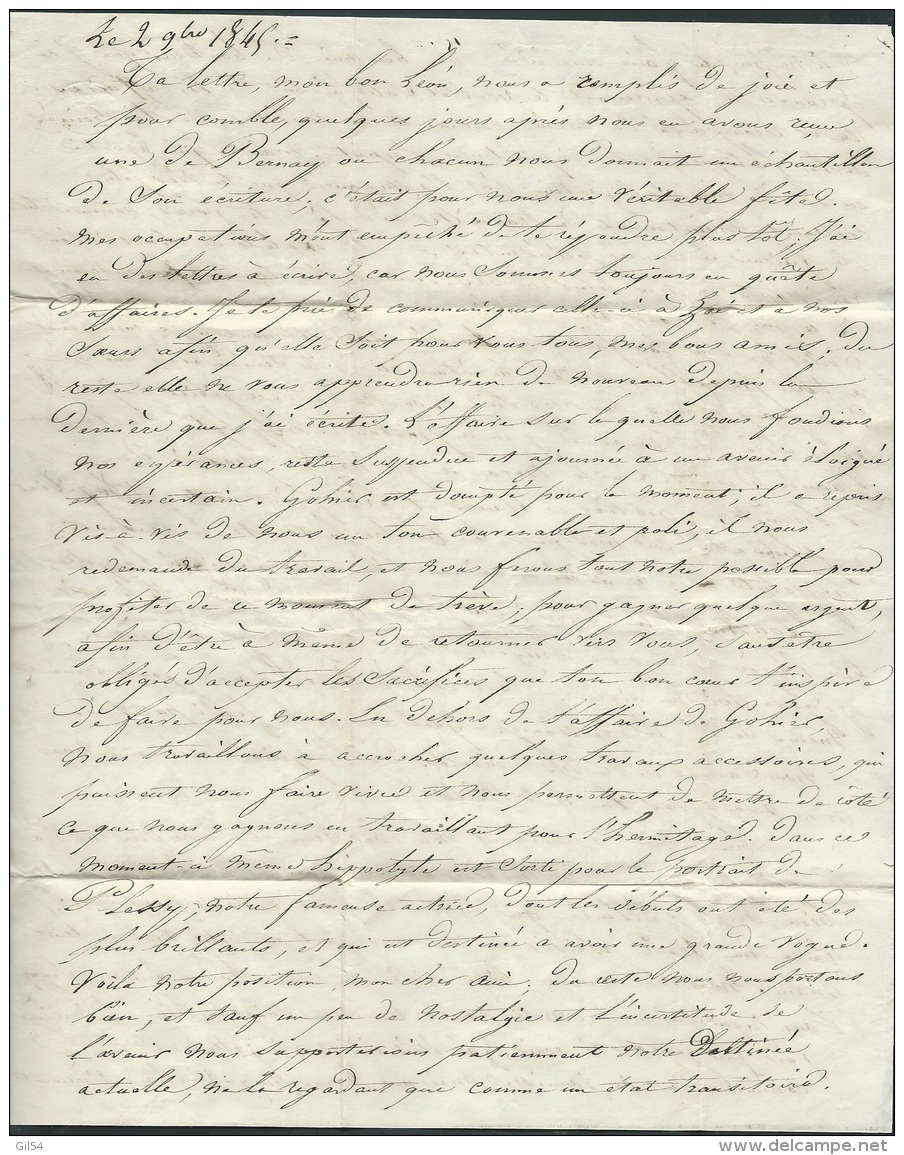 Le 2 9bre 1845.=
Ta lettre, mon bon Léon, nous a remplis de joie et
pour comble, quelques jours après nous en avons reçu
une de Bernay ou chacun nous donnait un échantillon
de son écriture, c'était pour nous une véritable fête.
mes occupations m'ont empêché de te répondre plus tôt, j'ai
eu des lettres à écrire, car nous sommes toujours en quête
d'affaires. Je te prie de communiquer celle-ci à Zoé et à nos
Sœurs afin qu'elle soit pour vous tous, mes bons amis, du
reste elle ne vous apprendra rien de nouveau depuis la
dernière que j'ai écrite. L'affaire sur laquelle nous fondions
nos espérances, reste suspendue et ajournée à un avenir éloigné
et incertain. Gohier est dompté pour le moment, il a repris
vis-à-vis de nous un ton convenable et poli, il nous
redemande du travail, et nous ferons tout notre possible pour
profiter de ce moment de trève, pour gagner quelque argent,
afin d'être à même de retourner vers vous, sans être
obligés d'accepter les sacrifices que ton bon cœur t'inspire
de faire pour nous. En dehors de l'affaire de Gohier,
nous travaillons à accrocher quelques travaux accessoires, qui
puissent nous faire vivre et nous permettent de mettre de côté
ce que nous gagnons en travaillant pour l'hermitage. Dans ce
moment-ci même hippolyte est sorti pour le portrait de
Plessy, notre fameuse actrice, dont les débuts ont été des
plus brillants, et qui est destinée a avoir une grande vogue.
Voilà notre position, mon cher ami, du reste nous nous portons
bien, et sauf un peu de nostalgie et l'incertitude de
l'avenir nous supporterions patiemment notre Destinée
actuelle, ne la regardant que comme un état transitoire.
Gil54
www.delcampe.net